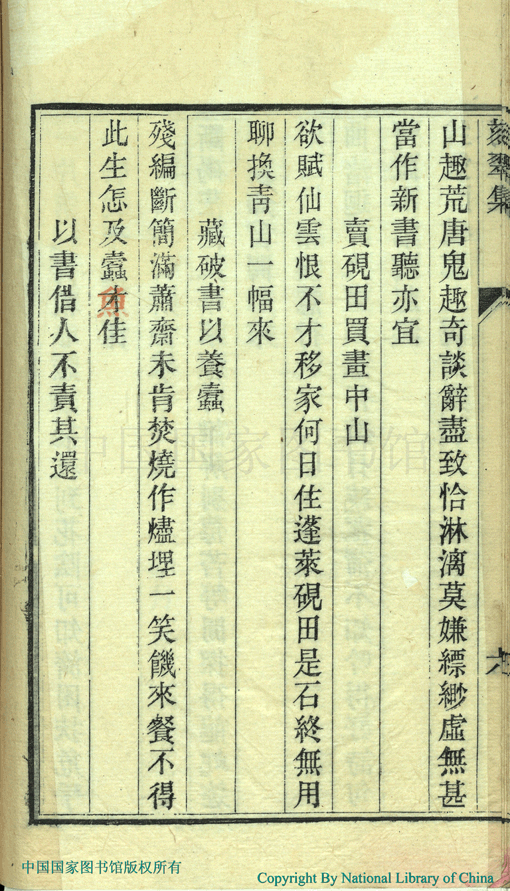 集
山趣荒唐鬼趣奇談辭盡致恰淋漓莫嫌縹緲虛無甚
當作新書聽亦宜
賣硯田買畫中山
欲賦仙雲恨不才移家何日住蓬萊硯田是石終無用
聊換靑山一幅來
藏破書以養蠹
殘編斷簡滿蕭齋未肯焚燒作燼埋一笑饑來餐不得
此生怎及蠹魚佳
以書借人不責其還
中国国家图书馆
中国国家图书馆版权所有
Copyright By National Library of China